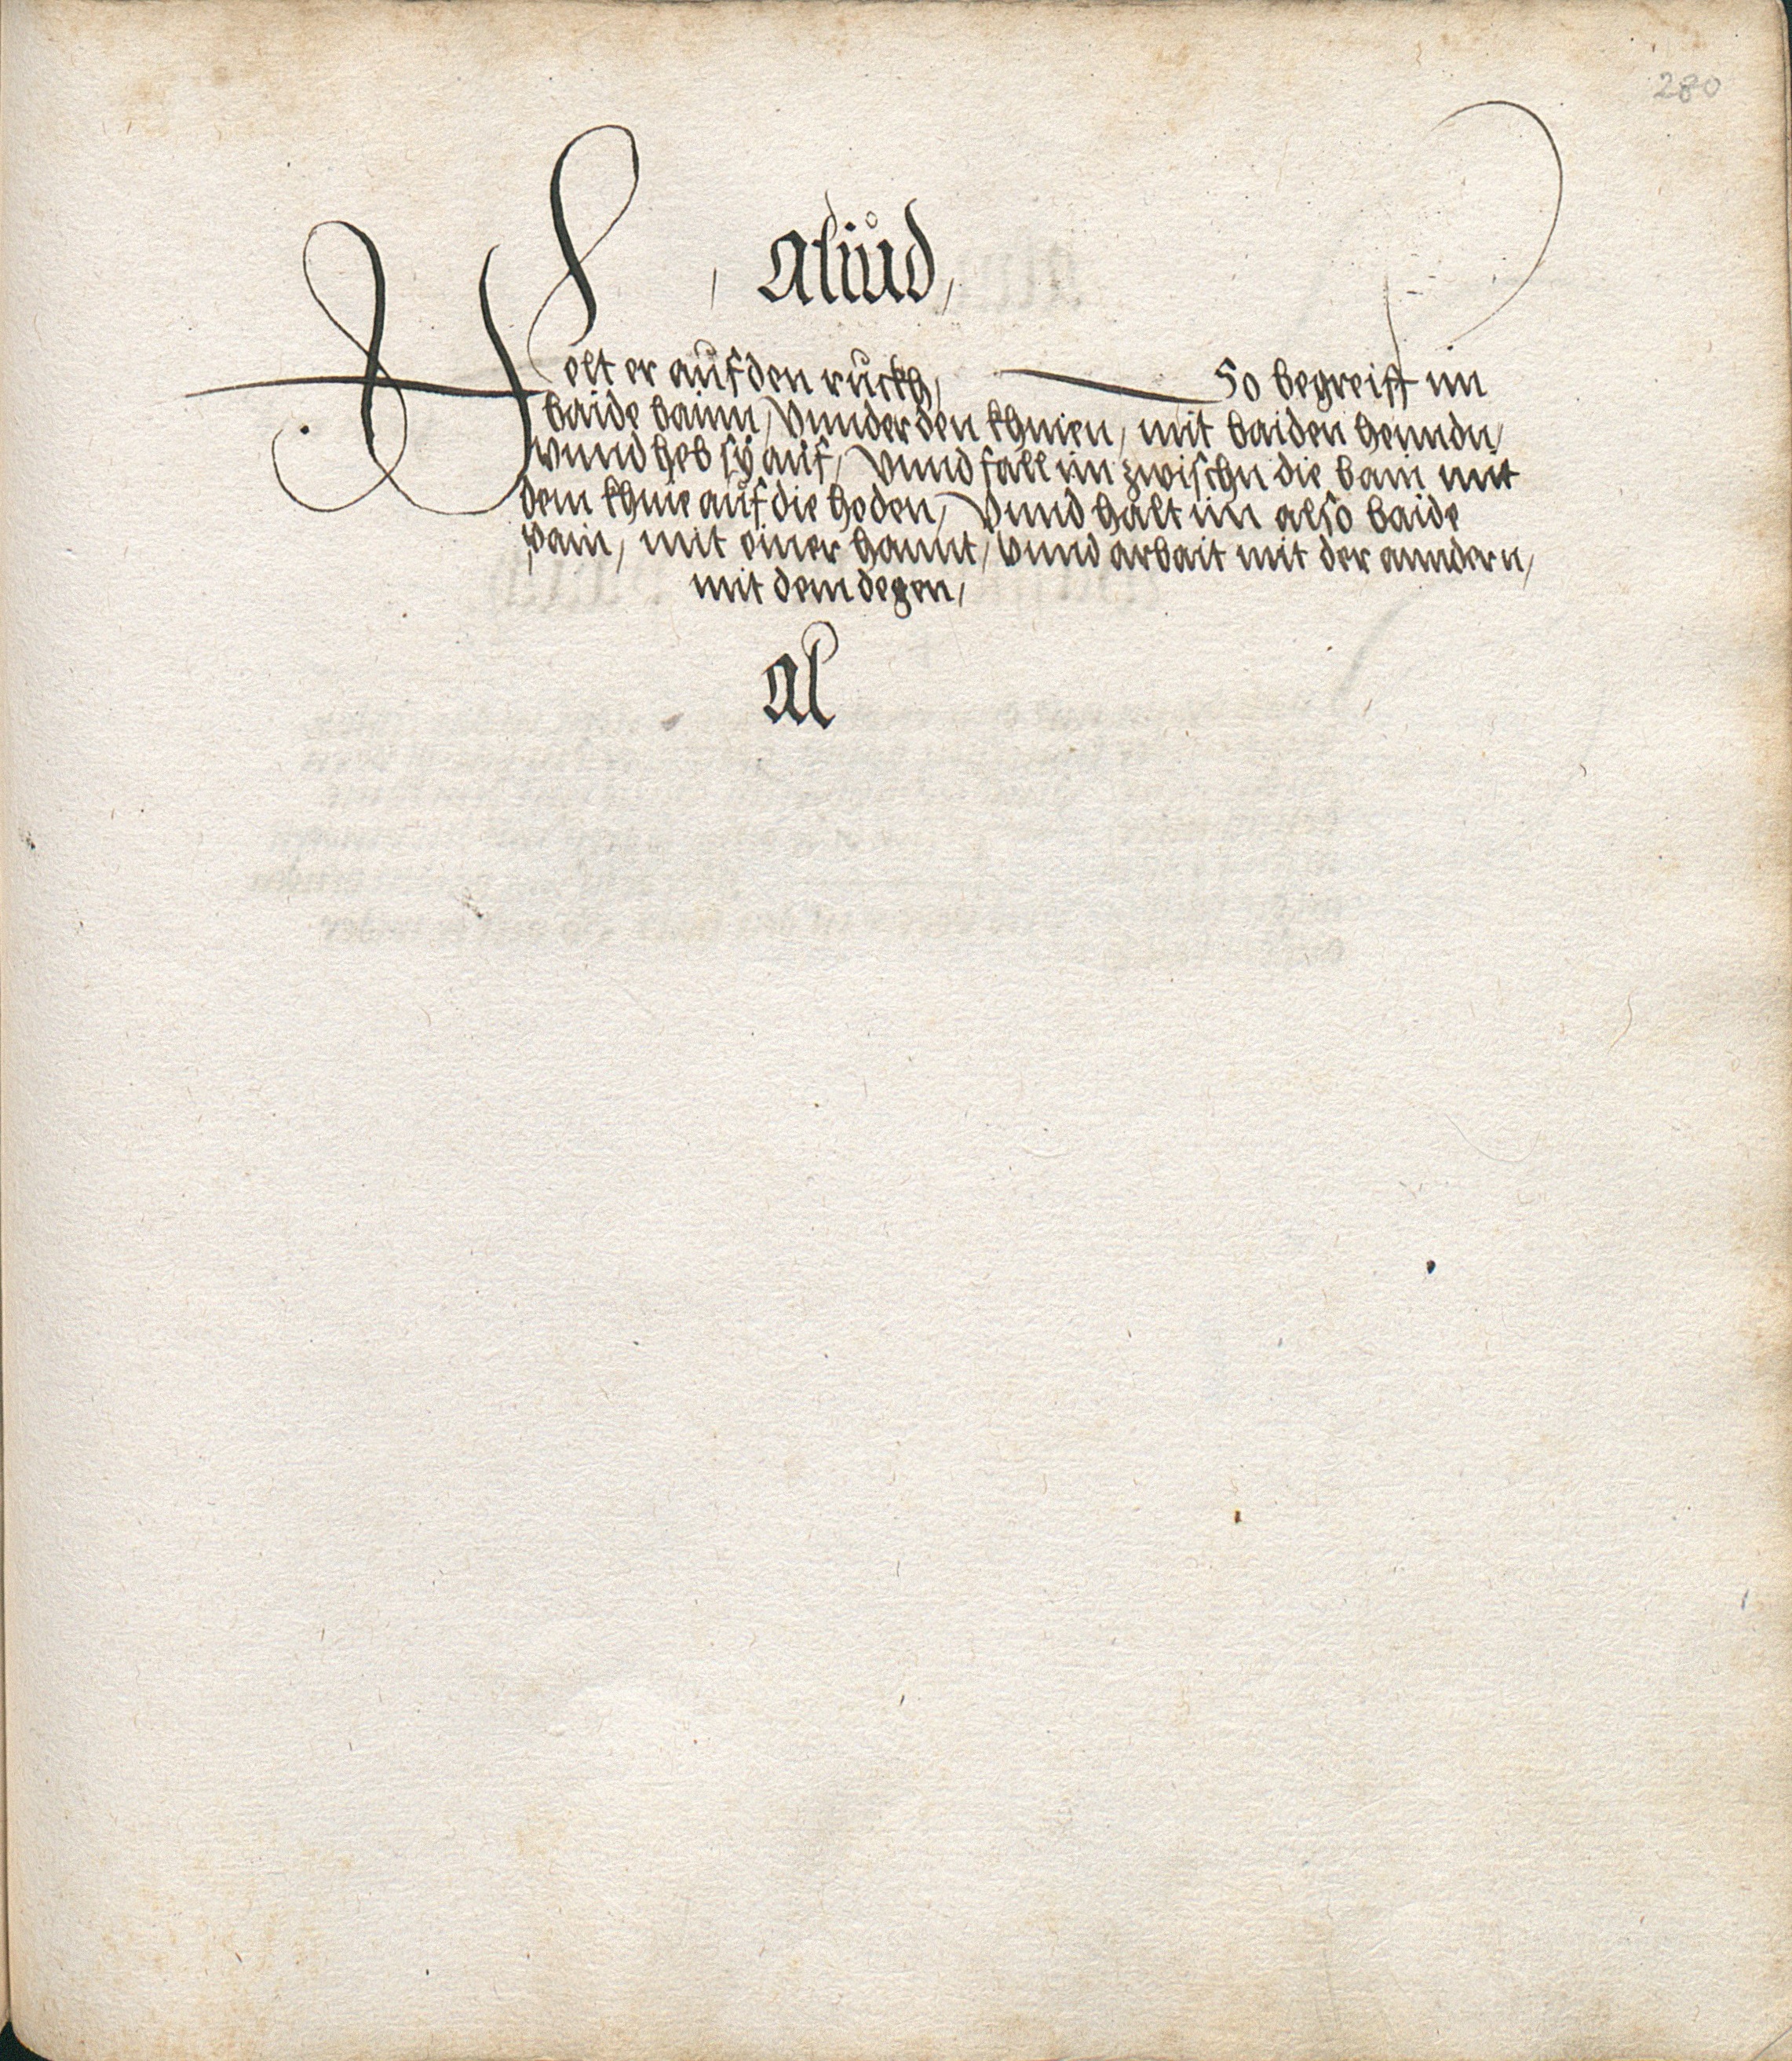 280
Aliůd,
Velt er auf den ruckh, So begreifft im
baide bainn, Vnnder den khnien, mit baiden henndn,
vnnd heb sÿ auf, Vnnd fall im zwischn die bain mit
dem khnie auf die hoden, Vnnd halt im also baide
pain, mit einer hannt, vnnd arbait mit der anndern,
mit dem degen,
Al